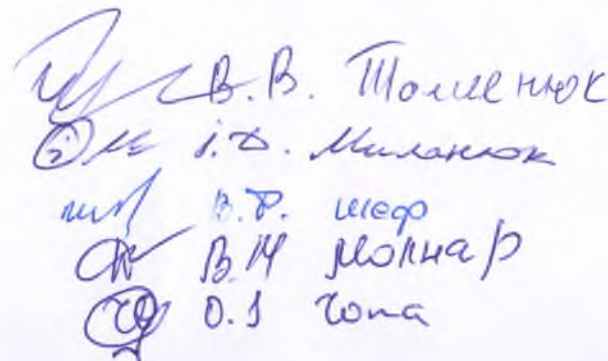 В.В. Томенюк
І.Д. Миланюк
В.Ф. Шеф
В.М Молнар
О.І Чопа